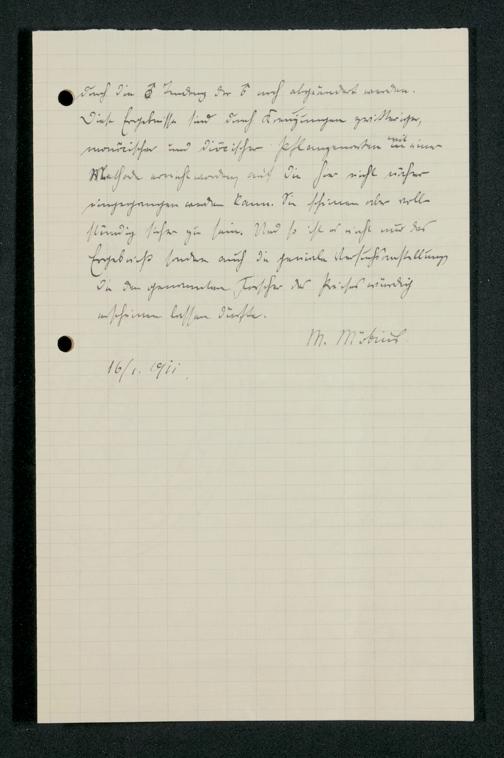 durch die ♂ Tendenz der ♂ noch abgeändert werden.
Diese Ergebnisse sind durch Kreuzungen zwittriger,
monözischer und diözischer Pflanzenarten mit einer
Methode erreicht worden, auf die hier nicht näher
eingegangen werden kann. Sie scheinen aber voll-
ständig sicher zu sein. Und so ist es nicht nur das
Ergebniss sondern auch die geniale Versuchsanstellung
die den genannten Forscher des Preises würdig
erscheinen lassen dürfte.
M. Möbius
16/1. 1911.